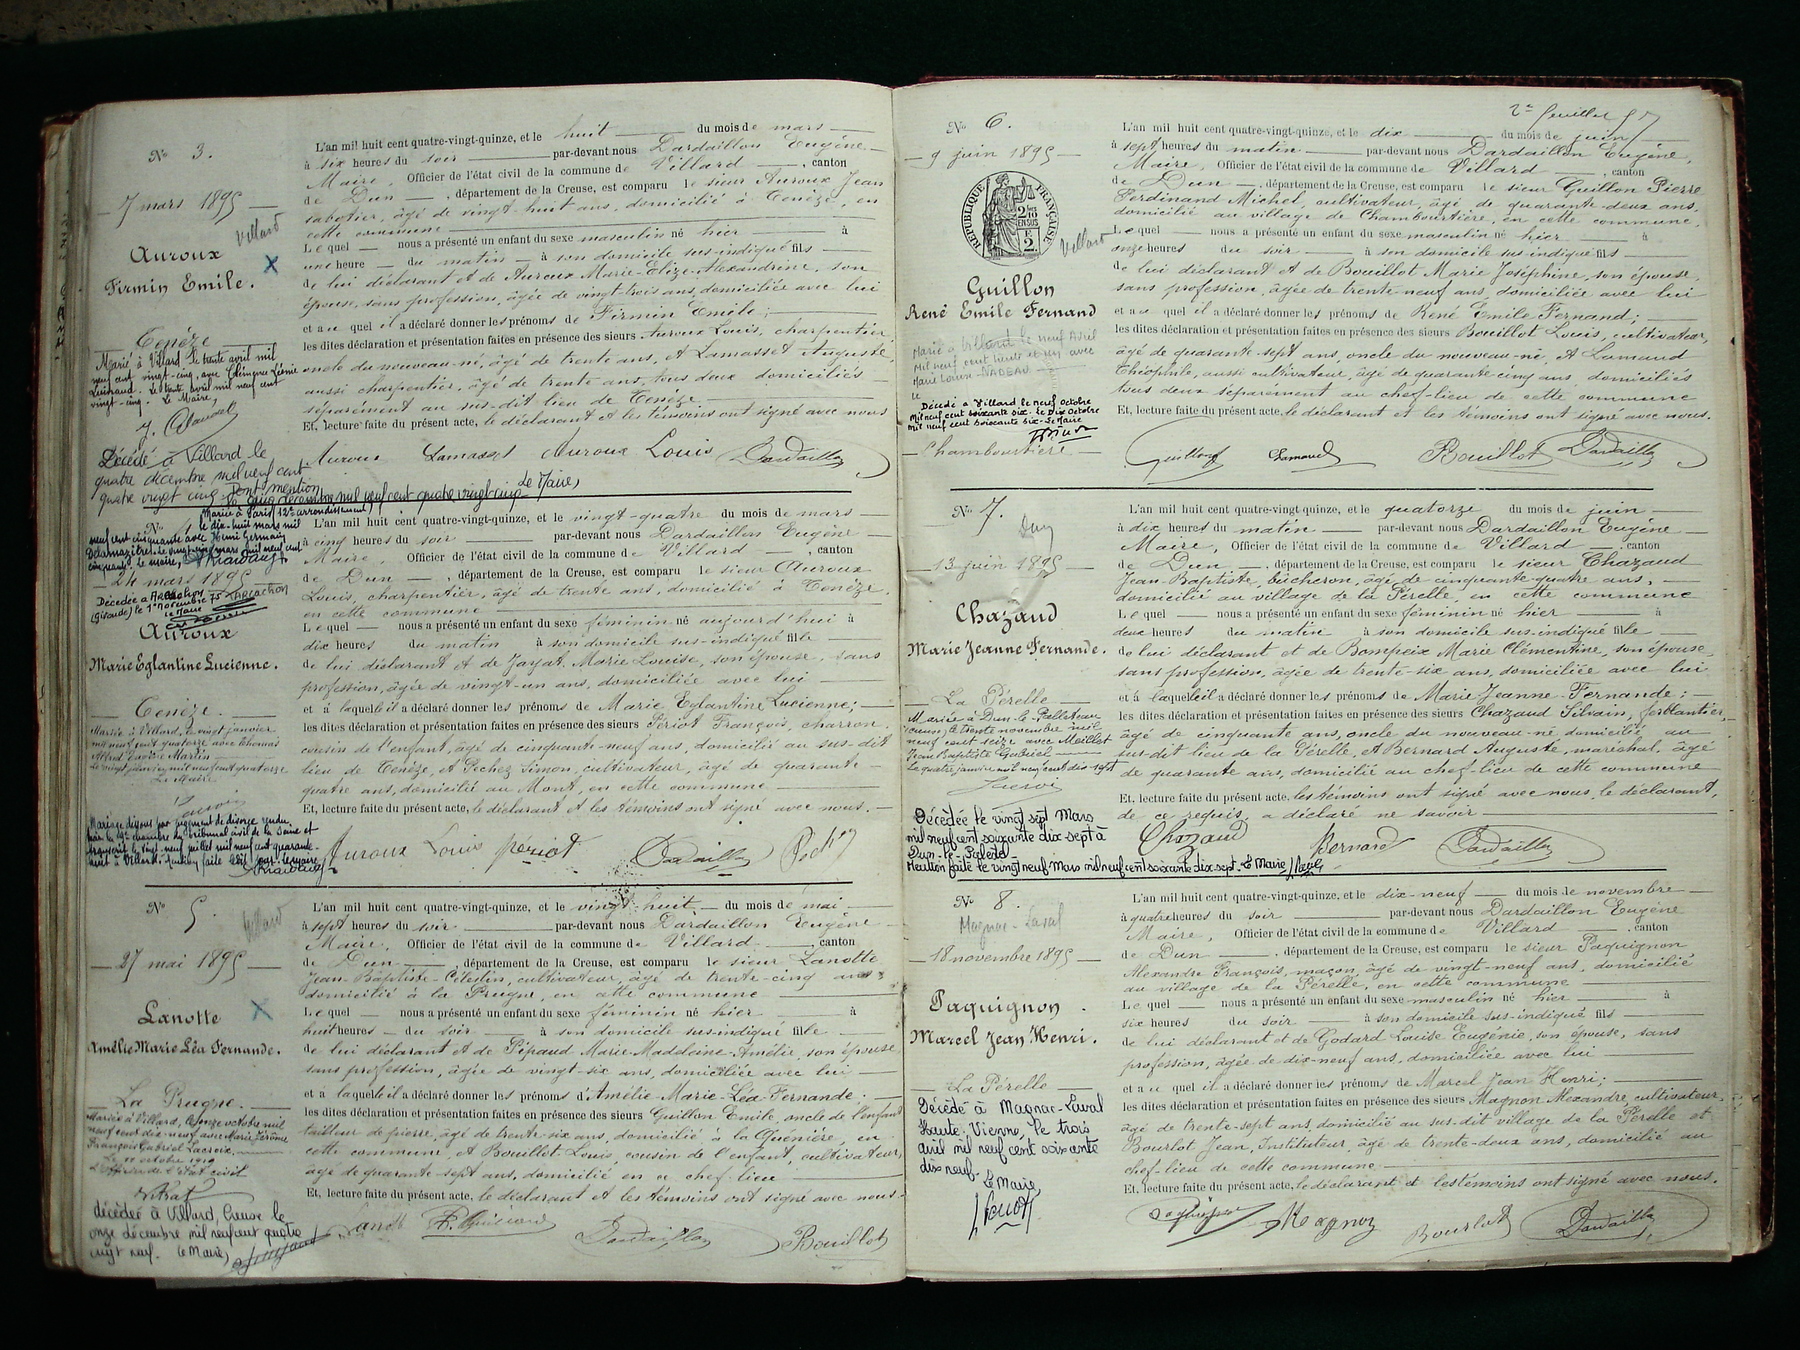 N° 3.
7 mars 1895
Villard
Auroux
Firmin Emile.
Tenèze
Marié à Villard le trente avril mil
neuf cent vingt-cinq, avec
le trente avril mil neuf cent
vingt-cinq. Le Maire,
Décédé à Villard le
quatre décembre mil neuf cent
quatre vingt cinq Dont mention
le cinq décembre mil neuf cent quatre vingt cinq Le Maire,
L'an mil huit cent quatre-vingt-quinze, et le huit du mois de mars
à six heures du soir par-devant nous Dardaillon Eugène
Maire, Officier de l'état civil de la commune de Villard, canton
de Dun, département de la Creuse, est comparu le sieur Auroux Jean
sabotier, âgé de vingt-huit ans, domicilié à Tenèze, en
cette commune
Lequel nous a présenté un enfant du sexe masculin né hier à
une heure du matin à son domicile sus-indiqué fils
de lui déclarant et de Auroux Marie-Elize-Alexandrine, son
épouse, sans profession, âgée de vingt-trois ans, domiciliée avec lui
et au quel il a déclaré donner les prénoms de Firmin Emile;
les dites déclaration et présentation faites en présence des sieurs Auroux Louis, charpentier,
oncle du nouveau-né, âgé de trente ans, et Lamasset Auguste,
aussi charpentier, âgé de trente ans, tous deux domiciliés
séparément au sus-dit lieu de Tenèze
Et, lecture faite du présent acte, le déclarant et les témoins ont signé avec nous
Auroux Lamasset Auroux Louis Dardaillon
N°
Mariée à Paris (12e arrondissement)
le dix-huit mars mil
neuf cent cinquante avec Henri Germain
Delamazière. le vingt-cinq mars mil neuf cent
cinquante. Le maire,
24 mars 1895
Décédée à ARCACHON
(Gironde) le 1er novembre 75 ARCACHON
Le Maire
Auroux
Marie Eglantine Lucienne.
Tenèze.
Mariée à Villard, le vingt janvier
mil neuf cent quatorze avec Thomas
Alfred Martin
le vingt janvier mil neuf cent quatorze
Le Maire
Mariage dissous par jugement de divorce rendu
par la chambre du tribunal civil de la Seine et
transcrit le vingt-neuf juillet mil neuf cent quarante-
à Villard. Mention faite le
L'an mil huit cent quatre-vingt-quinze, et le vingt-quatre du mois de mars
à cinq heures du soir par-devant nous Dardaillon Eugène
Maire, Officier de l'état civil de la commune de Villard, canton
de Dun, département de la Creuse, est comparu le sieur Auroux
Louis, charpentier, âgé de trente ans, domicilié à Tenèze,
en cette commune
Lequel nous a présenté un enfant du sexe féminin né aujourd'hui à
dix heures du matin à son domicile sus-indiqué fille
de lui déclarant et de Jayat Marie Louise, son épouse, sans
profession, âgée de vingt-un ans, domiciliée avec lui
et à laquelle il a déclaré donner les prénoms de Marie Eglantine Lucienne;
les dites déclaration et présentation faites en présence des sieurs Périot François, charron,
cousin de l'enfant, âgé de cinquante-neuf ans, domicilié au sus-dit
lieu de Tenèze, et Pechez Simon, cultivateur, âgé de quarante-
quatre ans, domicilié au Mont, en cette commune
Et, lecture faite du présent acte, le déclarant et les témoins ont signé avec nous.
Auroux Louis Dardaillon
N° 5.
Villard
27 mai 1895
Lanotte
Amélie Marie Léa Fernande.
La Prugne.
Mariée à Villard, le onze octobre mil
neuf cent dix-neuf avec Marie Jérôme
François Gabriel Lacroix,
le 11 octobre 1919
L'officier de l'état civil
décédée à Villard, Creuse le
onze décembre mil neuf cent quatre
vingt neuf. Le Maire,
L'an mil huit cent quatre-vingt-quinze, et le vingt huit du mois de mai
à sept heures du soir par-devant nous Dardaillon Eugène
Maire, Officier de l'état civil de la commune de Villard, canton
de Dun, département de la Creuse, est comparu le sieur Lanotte
Jean-Baptiste-Célestin, cultivateur, âgé de trente-cinq ans
domicilié à la Prugne, en cette commune
Lequel nous a présenté un enfant du sexe féminin né hier à
huit heures du soir à son domicile sus-indiqué fille
de lui déclarant et de Pipaud Marie-Madeleine-Amélie, son épouse
sans profession, âgée de vingt-six ans, domiciliée avec lui
et à laquelle il a déclaré donner les prénoms d'Amélie-Marie-Léa-Fernande;
les dites déclaration et présentation faites en présence des sieurs Guillon Emile, oncle de l'enfant
tailleur de pierre, âgé de trente-six ans, domicilié à la Guénière, en
cette commune, et Bouillot Louis, cousin de l'enfant, cultivateur,
âgé de quarante-sept ans, domicilié en ce chef-lieu
Et, lecture faite du présent acte, le déclarant et les témoins ont signé avec nous.
Dardaillon Bouillot
2e feuillet 57
N° 6.
9 juin 1895
RÉPUBLIQUE FRANÇAISE
Villard
Guillon
René Emile Fernand
Marié à Villard le neuf Avril
mil neuf cent trente et un avec
NADEAU
Décédé à Villard le neuf octobre
mil neuf cent soixante six. Le dix octobre
mil neuf cent soixante six. Le Maire
Chamboustière
L'an mil huit cent quatre-vingt-quinze, et le dix du mois de juin
à sept heures du matin par-devant nous Dardaillon Eugène,
Maire, Officier de l'état civil de la commune de Villard, canton
de Dun, département de la Creuse, est comparu le sieur Guillon Pierre
Ferdinand Michel, cultivateur, âgé de quarante-deux ans,
domicilié au village de Chamboustière, en cette commune
Lequel nous a présenté un enfant du sexe masculin né hier à
onze heures du soir à son domicile sus-indiqué fils
de lui déclarant et de Bouillot Marie Joséphine, son épouse,
sans profession, âgée de trente-neuf ans, domiciliée avec lui
et au quel il a déclaré donner les prénoms de René Emile Fernand;
les dites déclaration et présentation faites en présence des sieurs Bouillot Louis, cultivateur,
âgé de quarante-sept ans, oncle du nouveau-né, et Lamaud
Théophile, aussi cultivateur, âgé de quarante-cinq ans, domiciliés
tous deux séparément au chef-lieu de cette commune
Et, lecture faite du présent acte, le déclarant et les témoins ont signé avec nous.
Guillon Lamaud Bouillot Dardaillon
N° 7.
Dun
13 juin 1895
Chazaud
Marie Jeanne Fernande.
La Pérelle
Mariée à Dun-le-Palleteau
(Creuse) le trente novembre mil
neuf cent seize avec Meillet
Jean Baptiste Gabriel
Le quatre janvier mil neuf cent dix-sept
Décédée le vingt sept Mars
mil neuf cent soixante dix-sept à
Dun-le-Palestel
Mention faite le vingt neuf Mars mil neuf cent soixante dix-sept. Le Maire
L'an mil huit cent quatre-vingt-quinze, et le quatorze du mois de juin
à dix heures du matin par-devant nous Dardaillon Eugène
Maire, Officier de l'état civil de la commune de Villard, canton
de Dun, département de la Creuse, est comparu le sieur Chazaud
Jean-Baptiste, bûcheron, âgé de cinquante-quatre ans,
domicilié au village de la Pérelle, en cette commune
Lequel nous a présenté un enfant du sexe féminin né hier à
deux heures du matin à son domicile sus-indiqué fille
de lui déclarant et de Bompeix Marie Clémentine, son épouse,
sans profession, âgée de trente-six ans, domiciliée avec lui
et à laquelle il a déclaré donner les prénoms de Marie Jeanne-Fernande;
les dites déclaration et présentation faites en présence des sieurs Chazaud Silvain, ferblantier,
âgé de cinquante ans, oncle du nouveau-né domicilié au
sus-dit lieu de la Pérelle, et Bernard Auguste, maréchal, âgé
de quarante ans, domicilié au chef-lieu de cette commune
Et, lecture faite du présent acte, les témoins ont signé avec nous, le déclarant,
de ce requis, a déclaré ne savoir
Chazaud Bernard Dardaillon
N° 8.
Magnac-Laval
18 novembre 1895
Paquignon
Marcel Jean Henri.
La Pérelle
Décédé à Magnac-Laval
Haute-Vienne, le trois
avril mil neuf cent soixante
dix neuf.
Le Maire
L'an mil huit cent quatre-vingt-quinze, et le dix-neuf du mois de novembre
à quatre heures du soir par-devant nous Dardaillon Eugène
Maire, Officier de l'état civil de la commune de Villard, canton
de Dun, département de la Creuse, est comparu le sieur Paquignon
Alexandre François, maçon, âgé de vingt-neuf ans, domicilié
au village de la Pérelle, en cette commune
Lequel nous a présenté un enfant du sexe masculin né hier à
six heures du soir à son domicile sus-indiqué fils
de lui déclarant et de Godard Louise Eugénie, son épouse, sans
profession, âgée de dix-neuf ans, domiciliée avec lui
et au quel il a déclaré donner les prénoms de Marcel Jean Henri;
les dites déclaration et présentation faites en présence des sieurs Magnon Alexandre, cultivateur,
âgé de trente-sept ans, domicilié au sus-dit village de la Pérelle et
Bourlot Jean, Instituteur, âgé de trente-deux ans, domicilié au
chef-lieu de cette commune
Et, lecture faite du présent acte, le déclarant et les témoins ont signé avec nous.
Magnon Bourlot Dardaillon